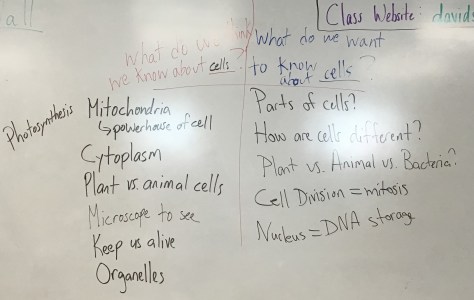 all
Class Website: davids
What do we think
we know about cells?
What do we want
to know
about cells?
Photosynthesis
Mitochondria
↳ powerhouse of cell
Cytoplasm
Plant vs. animal cells
Microscope to see
Keep us alive
Organelles
Parts of cells?
How are cells different?
Plant vs. Animal vs. Bacteria?
Cell Division = mitosis
Nucleus = DNA storage